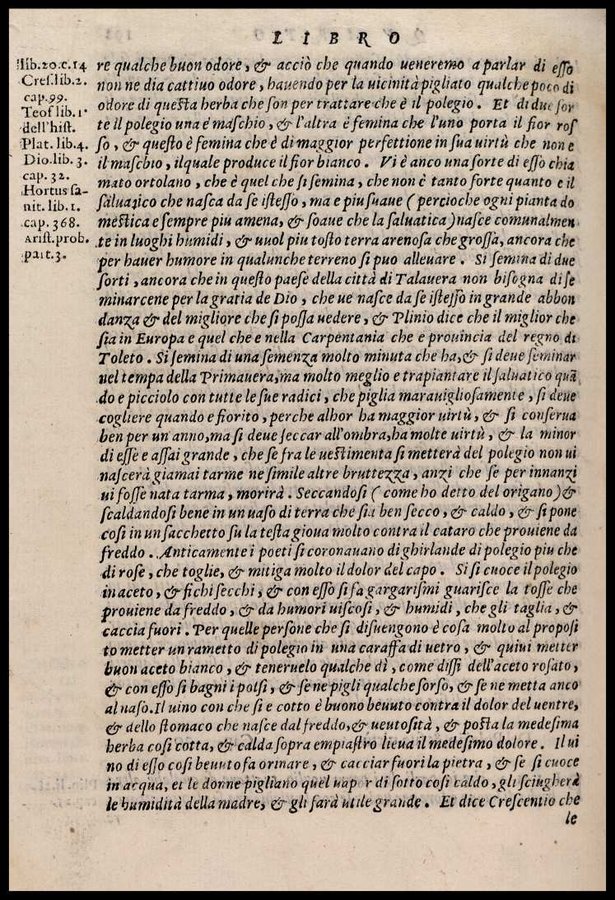 LIBRO
lib.20.c.14
Cres.lib.2.
cap.99.
Teof lib. 1°
dell'hist.
Plat. lib.4.
Dio. lib. 3.
cap. 32.
Hortus sa-
nit. lib. 1.
cap. 368.
Arist. prob.
part. 3.
re qualche buon odore, & acciò che quando ueneremo a parlar di esso
non ne dia cattiuo odore, hauendo per la uicinità pigliato qualche poco di
odore di questa herba che son per trattare che è il polegio. Et di due sor
te il polegio una è maschio, & l'altra è femina che l'uno porta il fior ros
so, & questo è femina che è di maggior perfettione in sua uirtù che non e
il maschio, ilquale produce il fior bianco. Vi è anco una sorte di esso chia
mato ortolano, che è quel che si semina, che non è tanto forte quanto e il
saluatico che nasca da se istesso, ma e piu suaue (percioche ogni pianta do
mestica e sempre piu amena, & soaue che la saluatica) nasce comunalmen
te in luoghi humidi, & uuol piu tosto terra arenosa che grossa, ancora che
per hauer humore in qualunche terreno si puo alleuare. Si semina di due
sorti, ancora che in questo paese della città di Talauera non bisogna di se
minarcene per la gratia de Dio, che ue nasce da se istesso in grande abbon
danza & del migliore che si possa uedere, & Plinio dice che il miglior che
sia in Europa e quel che e nella Carpentania che e prouincia del regno di
Toleto. Si semina di una semenza molto minuta che ha, & si deue seminar
nel tempa della Primauera, ma molto meglio e trapiantare il saluatico quã
do e picciolo con tutte le sue radici, che piglia marauigliosamente, si deue
cogliere quando e fiorito, perche alhor ha maggior uirtù, & si conserua
ben per un'anno, ma si deue seccar all'ombra, ha molte uirtù, & la minor
di esse e assai grande, che se fra le uestimenta si metterà del polegio non ui
nascerà giamai tarme ne simile altre bruttezza, anzi che se per innanzi
ui fosse nata tarma, morirà. Seccandosi (come ho detto del origano) &
scaldandosi bene in un uaso di terra che sia ben secco, & caldo, & si pone
cosi in un sacchetto su la testa gioua molto contra il cataro che prouiene da
freddo. Anticamente i poeti si coronauano di ghirlande di polegio piu che
di rose, che toglie, & mitiga molto il dolor del capo. Si si cuoce il polegio
in aceto, & fichi secchi, & con esso si fa gargarismi guarisce la tosse che
prouiene da freddo, & da humori uiscosi, & humidi, che gli taglia, &
caccia fuori. Per quelle persone che si disuengono è cosa molto al proposi
to metter un rametto di polegio in una caraffa di uetro, & quiui metter
buon aceto bianco, & teneruelo qualche dì, come dissi dell'aceto rosato,
& con esso si bagni i polsi, & se ne pigli qualche sorso, & se ne metta anco
al naso. Il uino con che si e cotto è buono beuuto contra il dolor del uentre,
& dello stomaco che nasce dal freddo, & ueutosità, & posta la medesima
herba cosi cotta, & calda sopra empiastro lieua il medesimo dolore. Il ui
no di esso cosi beuuto fa orinare, & cacciar fuori la pietra, & se si cuoce
in acqua, et le donne pigliano quel uapor di sotto cosi caldo, gli sciugherà
le humidità della madre, & gli farà utile grande. Et dice Crescentio che
le